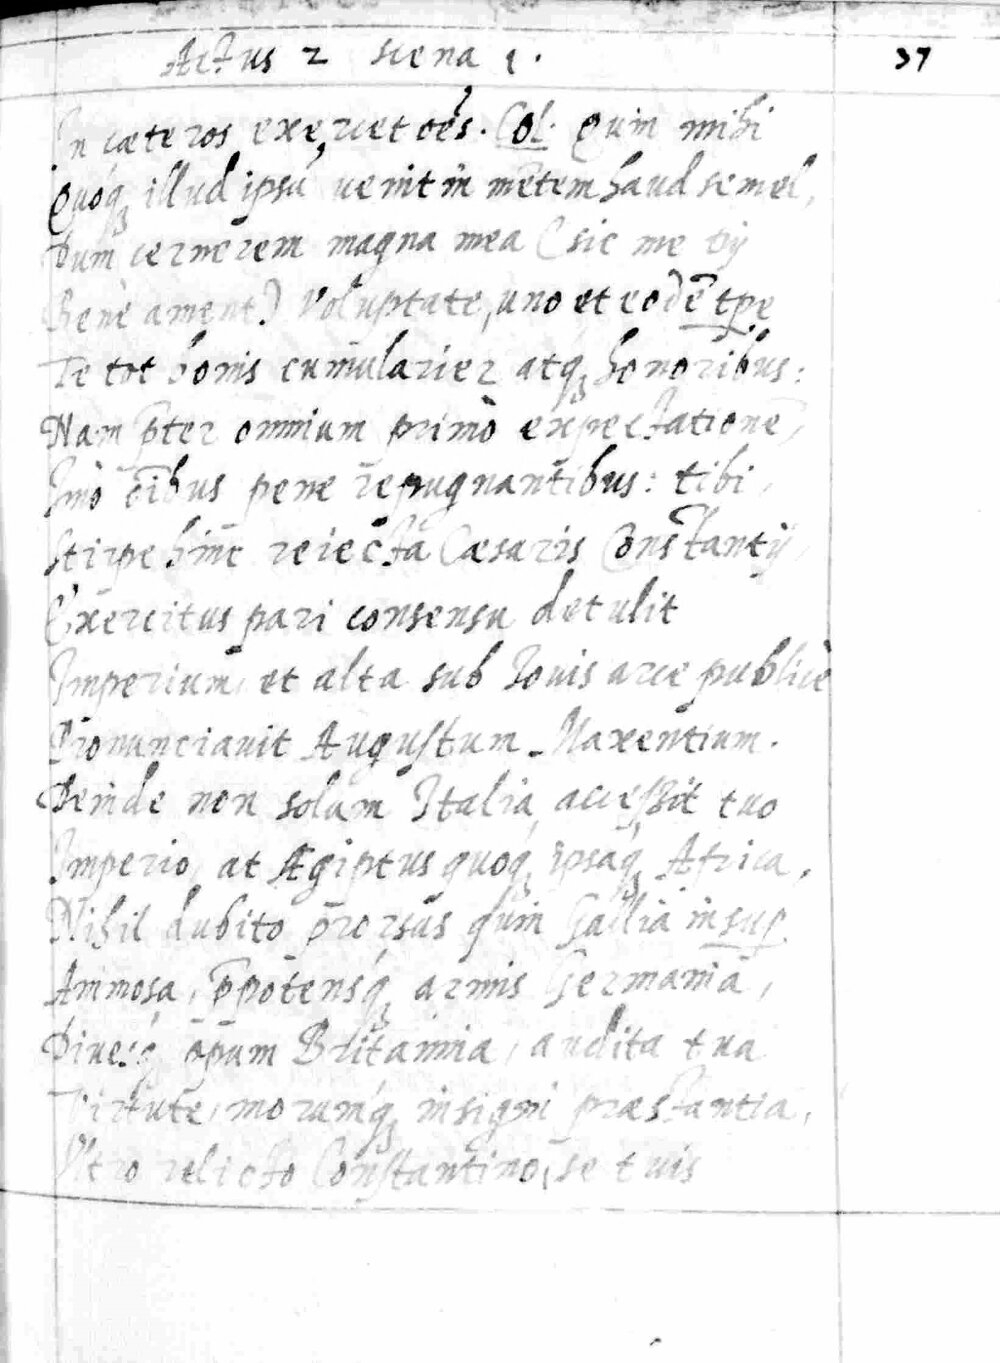 Actus 2 scena 1. 37
In cæteros exercet oēs. Col. Quin mihi
Quóq; illud ipsū venit in mētem haud semel,
Dum cernerem magna mea (sic me dij
Bene ament) voluptate, uno et eodē tpe
Te tot bonis cumularier atq; honoribus:
Nam p̄ter omnium primò expectationē,
Imò oībus pene repugnantibus: tibi,
Stirpe hinc reiectā Cæsaris Constantij,
Exercitus pari consensu detulit
Imperium, et alta sub Iouis arce publicè
Pronunciauit Augustum Maxentium.
Deinde non solùm Italia accessit tuo
Imperio, at Ægiptus quoq; ipsaq; Africa,
Nihil dubito prorsùs quin Gallia insup
Animosa, p̄potensq́; armis Germania,
opum Britannia, audita tua
Virtute, morumq́; insigni præstantia,
Vltro relicto Constantino, se tuis